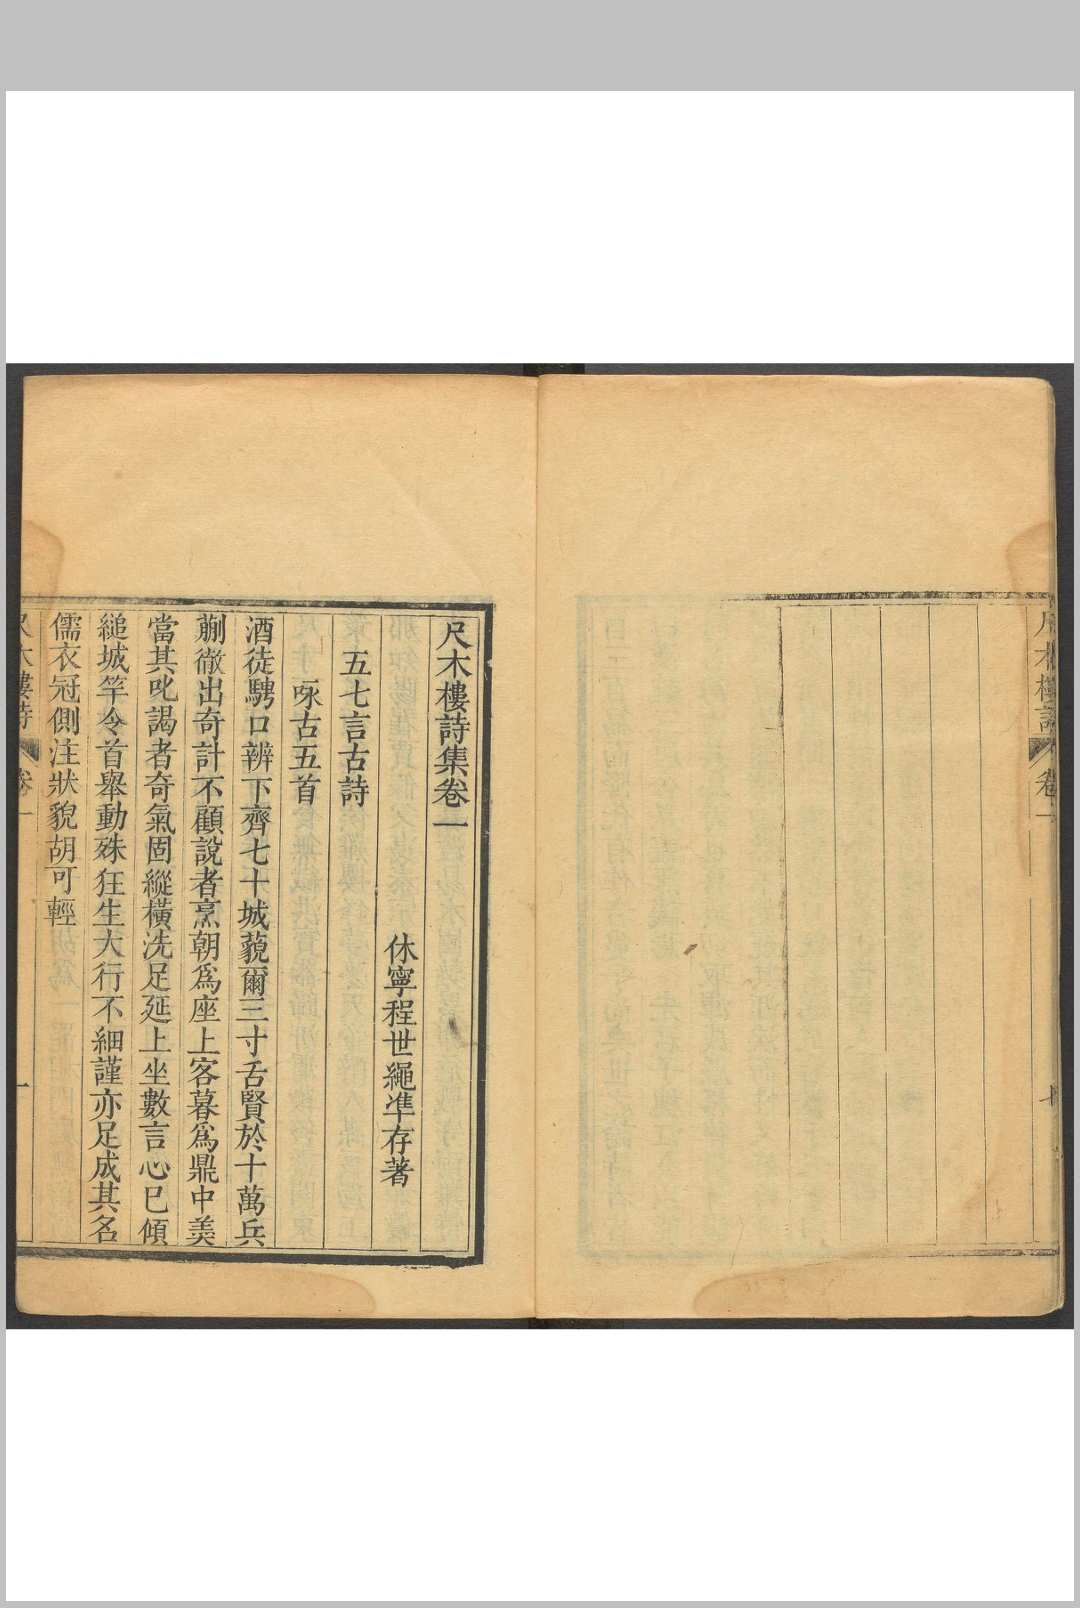 尺木樓詩
卷一
尺木樓詩集卷一
休寧程世繩準存著
五七言古詩
咏古五首
酒徒騁口辨下齊七十城藐爾三寸舌賢於十萬兵
蒯徹出奇計不顧說者烹朝爲座上客暮爲鼎中羹
當其叱謁者奇氣固縱橫洗足延上坐數言心已傾
縋城竿令首舉動殊狂生大行不細謹亦足成其名
儒衣冠側注狀貌胡可輕
尺木樓詩
卷一
一